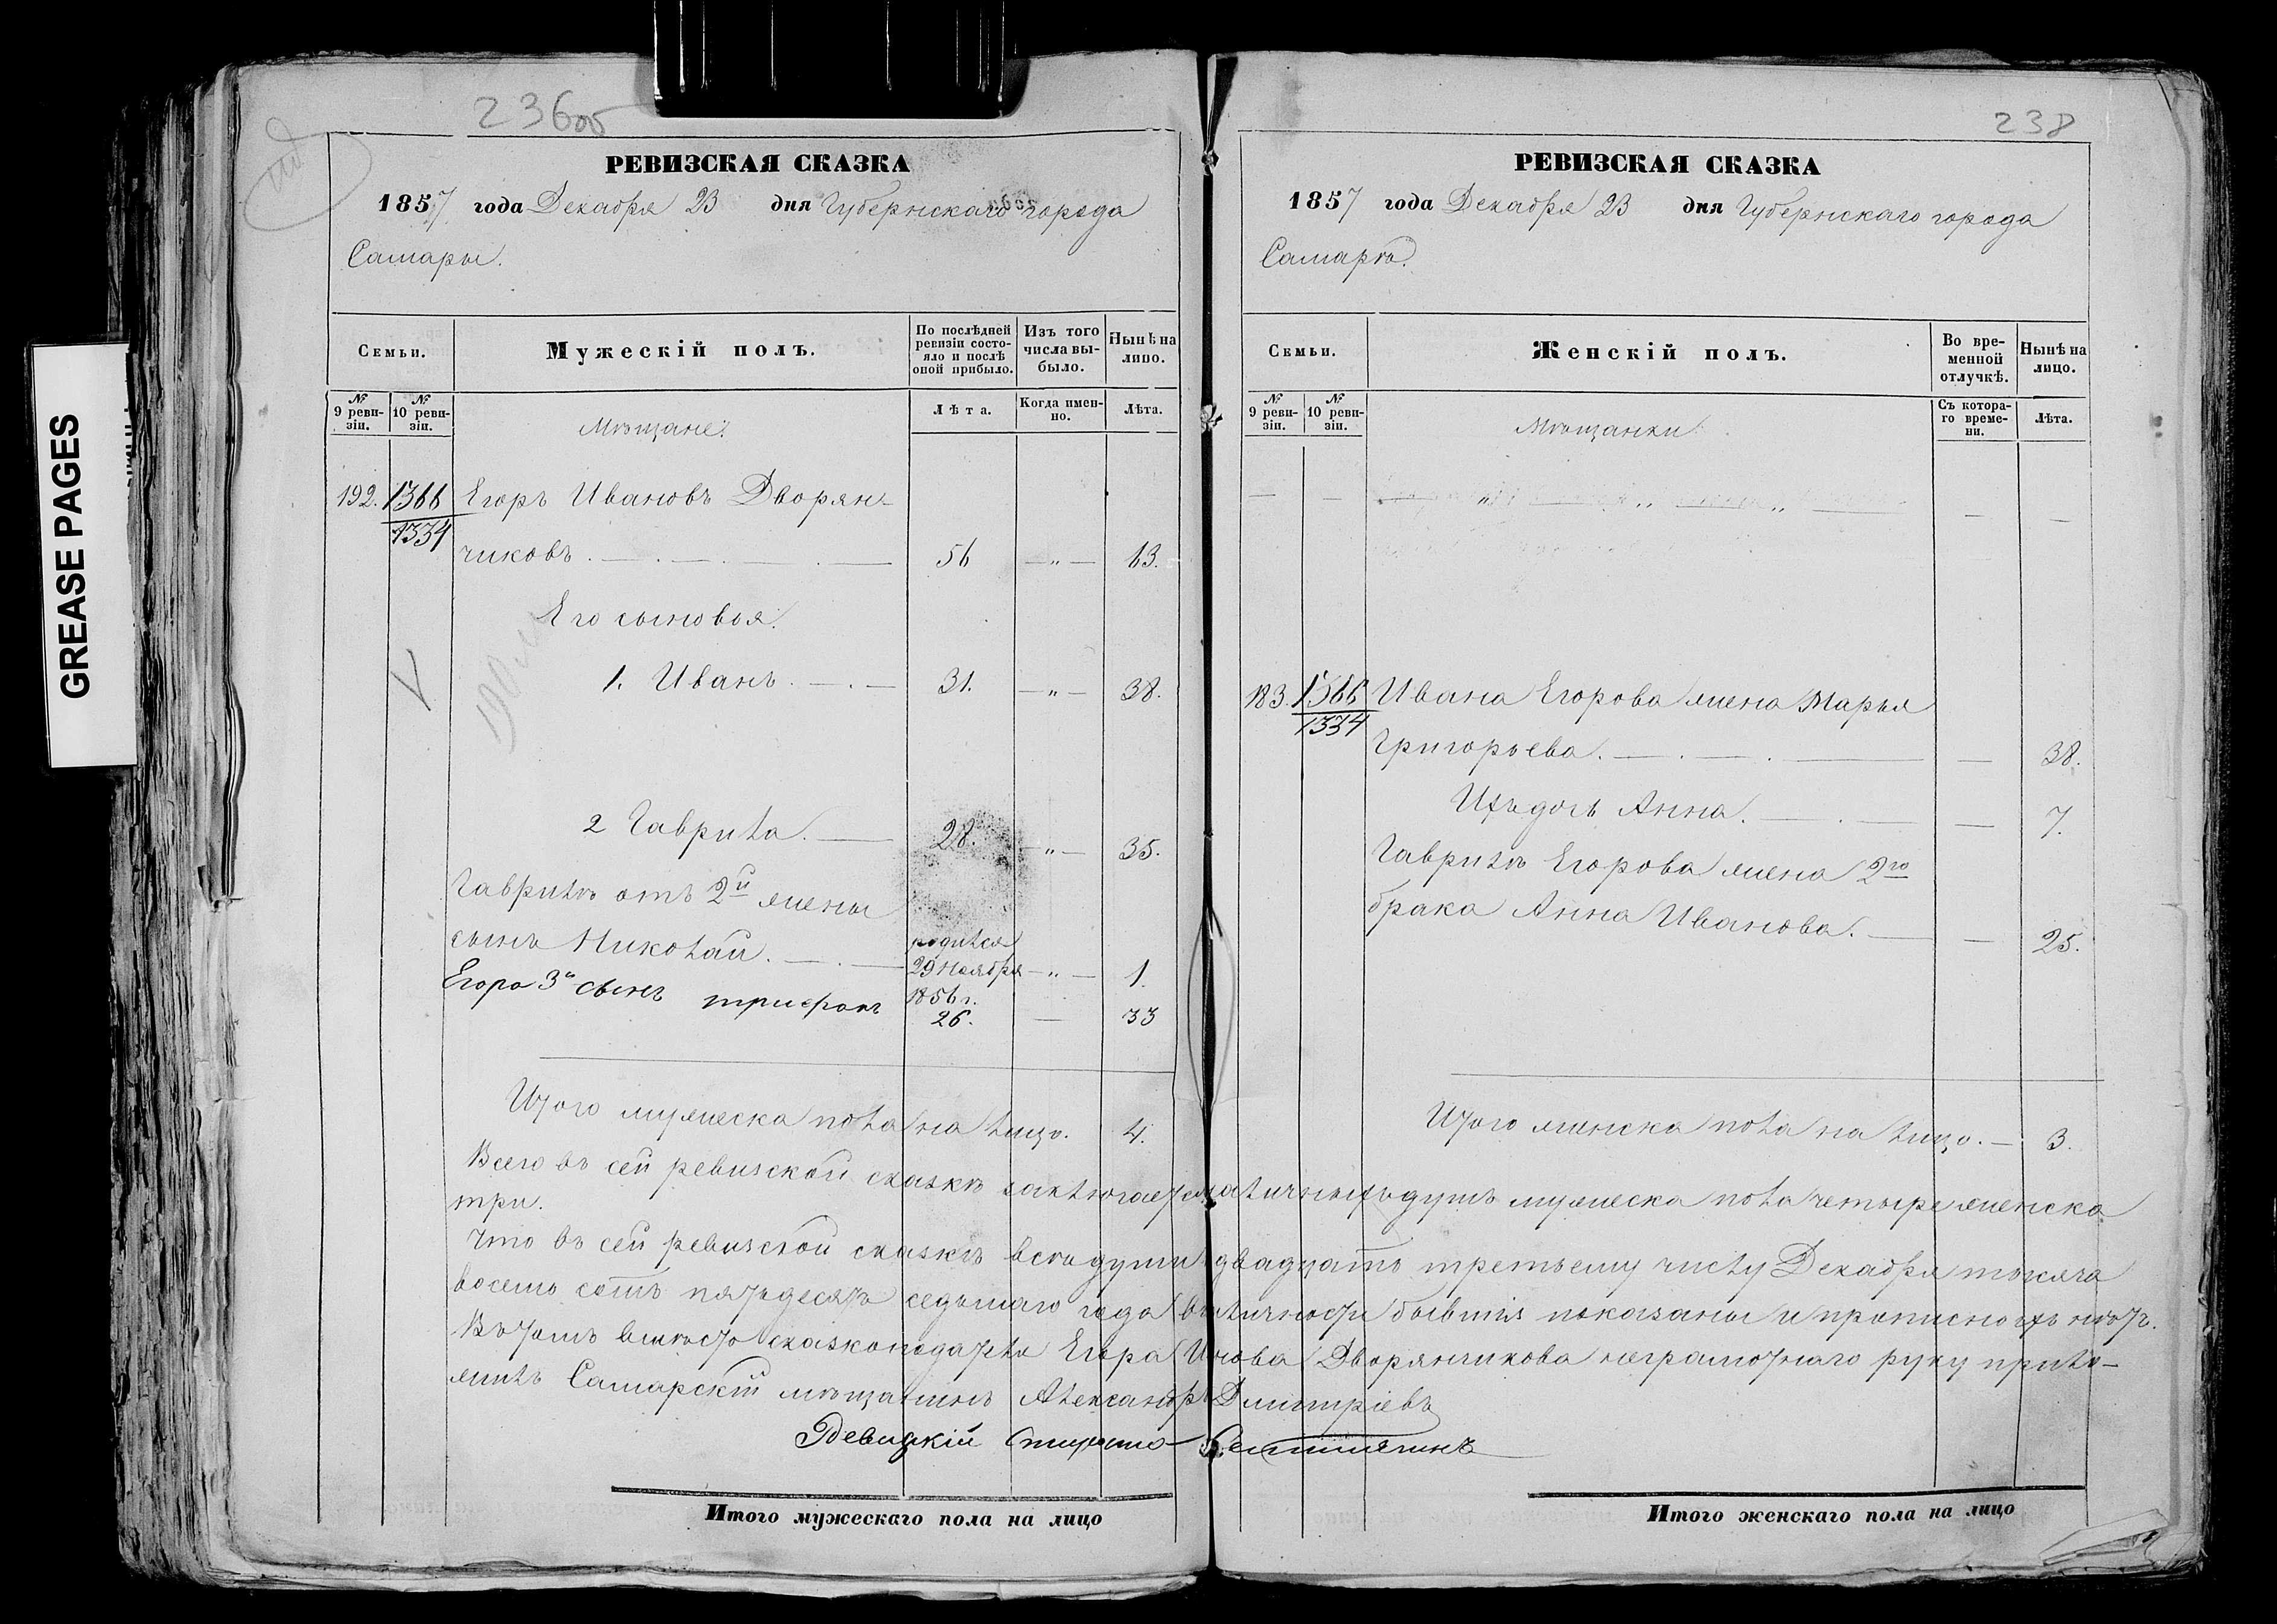 GREASE PAGES
236об
РЕВИЗСКАЯ СКАЗКА
1857 года Декабря 23 дня Губернскаго города
Самары.
Семьи.
Мужескій полъ.
По послѣдней ревизіи состояло и послѣ оной прибыло.
Изъ того числа выбыло.
Нынѣ на лицо.
№ 9 ревизіи.
№ 10 ревизіи.
Мѣщане.
Лѣта.
Когда именно.
Лѣта.
192. 1366 Егоръ Ивановъ Дворян-
1334
чиковъ. 56 — „ — 63.
Его сыновья.
1. Иванъ. 31. — „ — 38.
2 Гаврила. 28. — „ — 35.
Гаврилы отъ 2й жены
сынъ Николай. родился 29 Ноября 1856 г. — „ — 1.
Егора 3й сынъ Трифонъ 26. — 33
Итого мужеска пола на лицо. 4.
238
РЕВИЗСКАЯ СКАЗКА
1857 года Декабря 23 дня Губернскаго города
Самары.
Семьи.
Женскій полъ.
Во временной отлучкѣ.
Нынѣ на лицо.
№ 9 ревизіи.
№ 10 ревизіи.
Мѣщанки.
Съ котораго времени.
Лѣта.
183. 1366 Ивана Егорова жена Марья
1334
Григорьева. — 38.
Ихъ дочь Анна. — 7.
Гаврилы Егорова жена 2го
брака Анна Иванова. — 25.
Итого женска пола на лицо. — 3.
Всего въ сей ревизской сказкѣ заключается наличныхъ душъ мужеска пола четыре женска
три.
Что въ сей ревизской сказкѣ всѣ души къ двадцать третьему числу Декабря тысяча
восемь сотъ пятьдесятъ седьмаго года въ личности бывшія показаны и прописныхъ нѣтъ.
Въ томъ вмѣсто сказкоподателя Егора Иванова Дворянчикова неграмотнаго руку прило-
жилъ Самарскій мѣщанинъ Александръ Дмитріевъ
Итого мужескаго пола на лицо
Итого женскаго пола на лицо